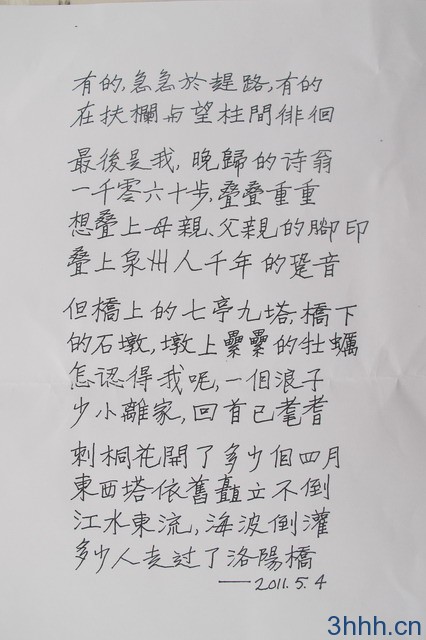 有的,急急於趕路,有的
在扶欄与望柱間徘徊
最後是我,晚歸的诗翁
一千零六十步,叠叠重重
想叠上母親、父親的腳印
叠上泉州人千年的跫音
但橋上的七亭九塔,橋下
的石墩,墩上纍纍的牡蠣
怎認得我呢,一個浪子
少小離家,回首已耄耆
刺桐花開了多少個四月
東西塔依舊矗立不倒
江水東流,海波倒灌
多少人走过了洛陽橋
——2011.5.4
3hhh.cn